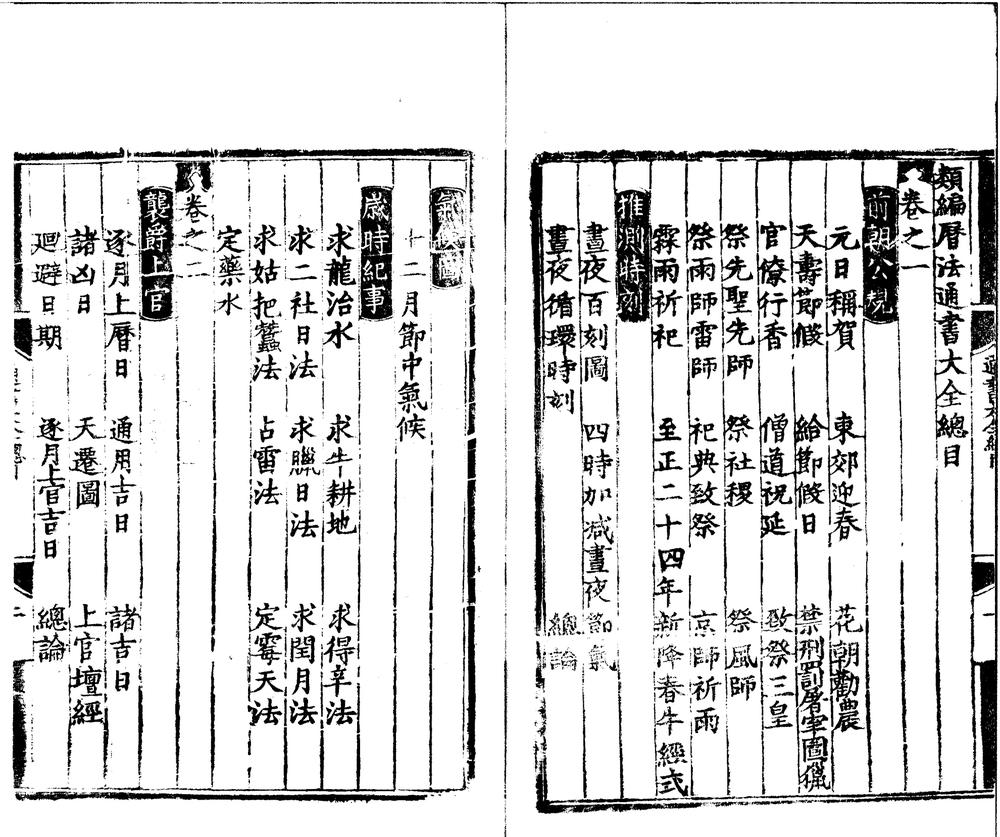 類編曆法通書大全總目
卷之一
前朝公規
元日稱賀 東郊迎春 花朝勸農
天壽節假 給節假日 禁刑罰屠宰圍獵
官僚行香 僧道祝延 致祭三皇
祭先聖先師 祭社稷 祭風師
祭雨師雷師 祀典致祭 京師祈雨
霖雨祈祀 至正二十四年新降春牛經式
推測時刻
晝夜百刻圖 四時加减晝夜節氣
晝夜循環時刻 總論
氣候圖
十二月節中氣候
歲時紀事
求龍治水 求牛耕地 求得辛法
求二社日法 求臘日法 求閏月法
求姑把蠶法 占雷法 定霉天法
定藥水
卷之二
襲爵上官
逐月上曆日 通用吉日 諸吉日
諸凶日 天遷圖 上官壇經
廻避日期 逐月上官吉日 總論